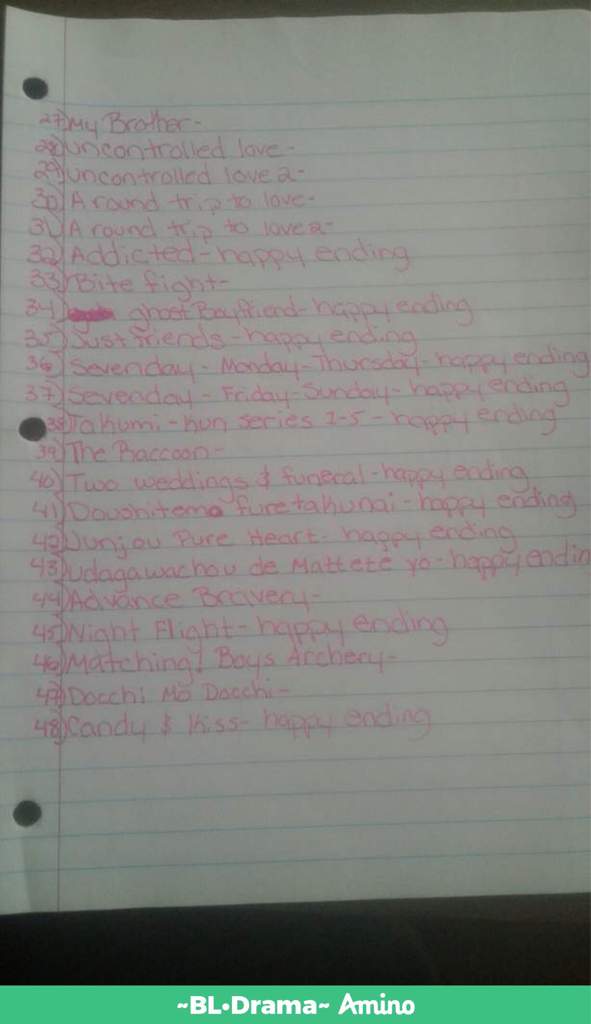 27) My Brother-
28) uncontrolled love-
29) uncontrolled love 2-
30) A round trip to love-
31) A round trip to love 2-
32) Addicted-happy ending
33) Bite fight-
34) ghost Boyfriend-happy ending
35) Just friends-happy ending
36) Sevenday-Monday-Thursday-happy ending
37) Sevenday-Friday-Sunday-happy ending
38) Takumi-kun series 1-5-happy ending
39) The Raccoon-
40) Two weddings & funeral-happy ending
41) Doushitemo furetakunai-happy ending
42) Junjou Pure Heart-happy ending
43) Udagawachou de Mattete yo-happy endin
44) Advance Bravery-
45) Night Flight-happy ending
46) Matching! Boys Archery-
47) Docchi Mo Docchi-
48) Candy & Kiss-happy ending
~BL•Drama~ Amino